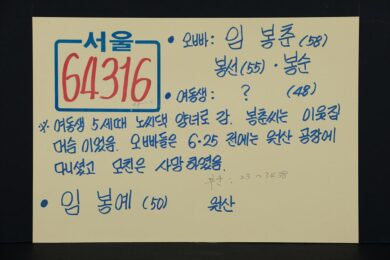 서울
64316
• 오빠: 임 봉춘 (58)
봉선 (55) · 봉순
• 여동생: ? (48)
※ 여동생 5세때 노씨댁 양녀로 감. 봉춘씨는 이웃집
머슴 이었음. 오빠들은 6·25 전에는 원산 공장에
다니셨고 모친은 사망 하였음.
• 임 봉예 (50) 원산